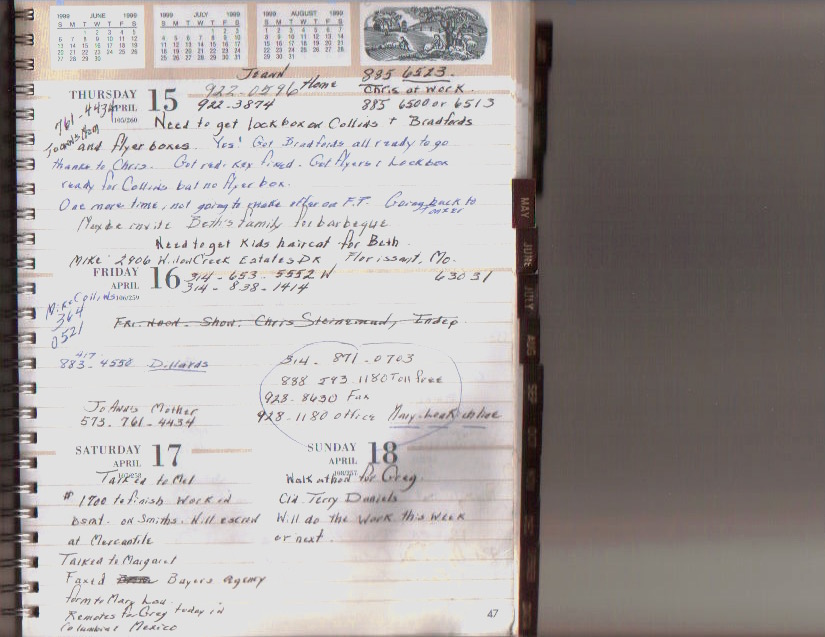 1999 JUNE 1999
S M T W T F S
1 2 3 4 5
6 7 8 9 10 11 12
13 14 15 16 17 18 19
20 21 22 23 24 25 26
27 28 29 30
1999 JULY 1999
S M T W T F S
1 2 3
4 5 6 7 8 9 10
11 12 13 14 15 16 17
18 19 20 21 22 23 24
25 26 27 28 29 30 31
1999 AUGUST 1999
S M T W T F S
1 2 3 4 5 6 7
8 9 10 11 12 13 14
15 16 17 18 19 20 21
22 23 24 25 26 27 28
29 30 31
Jeann 885 6523
922-0596 Home Chris at work
THURSDAY 15 922-3874 885 6500 or 6513
APRIL
105/260
761-4434
JoAnn's Mom
Need to get lockbox on Collins + Bradfords
and flyer boxes. Yes! Got Bradfords all ready to go
thanks to Chris. Got red. key fixed. Got flyers & Lockbox
ready for Collins but no flyer box.
One more time, not going to make offer on F.T. Going back to
Maybe invite Beth's family for barbeque
Need to get Kids haircat for Beth
Mike 2906 WillowCreek Estates DR Florissant, Mo.
63031
FRIDAY 16 314-653-5552 W
APRIL 314-838-1414
106/259
Mike Collins
364
0521
Fri. Noon - Show. Chris Indep.
417
883-4550 Dillards
314-871-0703
888 593 1180 Toll Free
928-8630 Fax
928-1180 office Mary Lou
JoAnn's Mother
573-761-4434
SATURDAY 17
APRIL
107/258
Talked to Mel
# 1700 to finish work in
bsmt. on Smiths. Will escrow
at Mercantile
Talked to Margaret
Faxed Buyers Agency
form to Mary Lou
Remotes for Greg today in
Columbia + Mexico
SUNDAY 18
APRIL
108/257
Walkathon for Greg.
Cld. Terry Daniels
Will do the work this week
or next.
47
MAY
JUNE
JULY
AUG
SEP
OCT